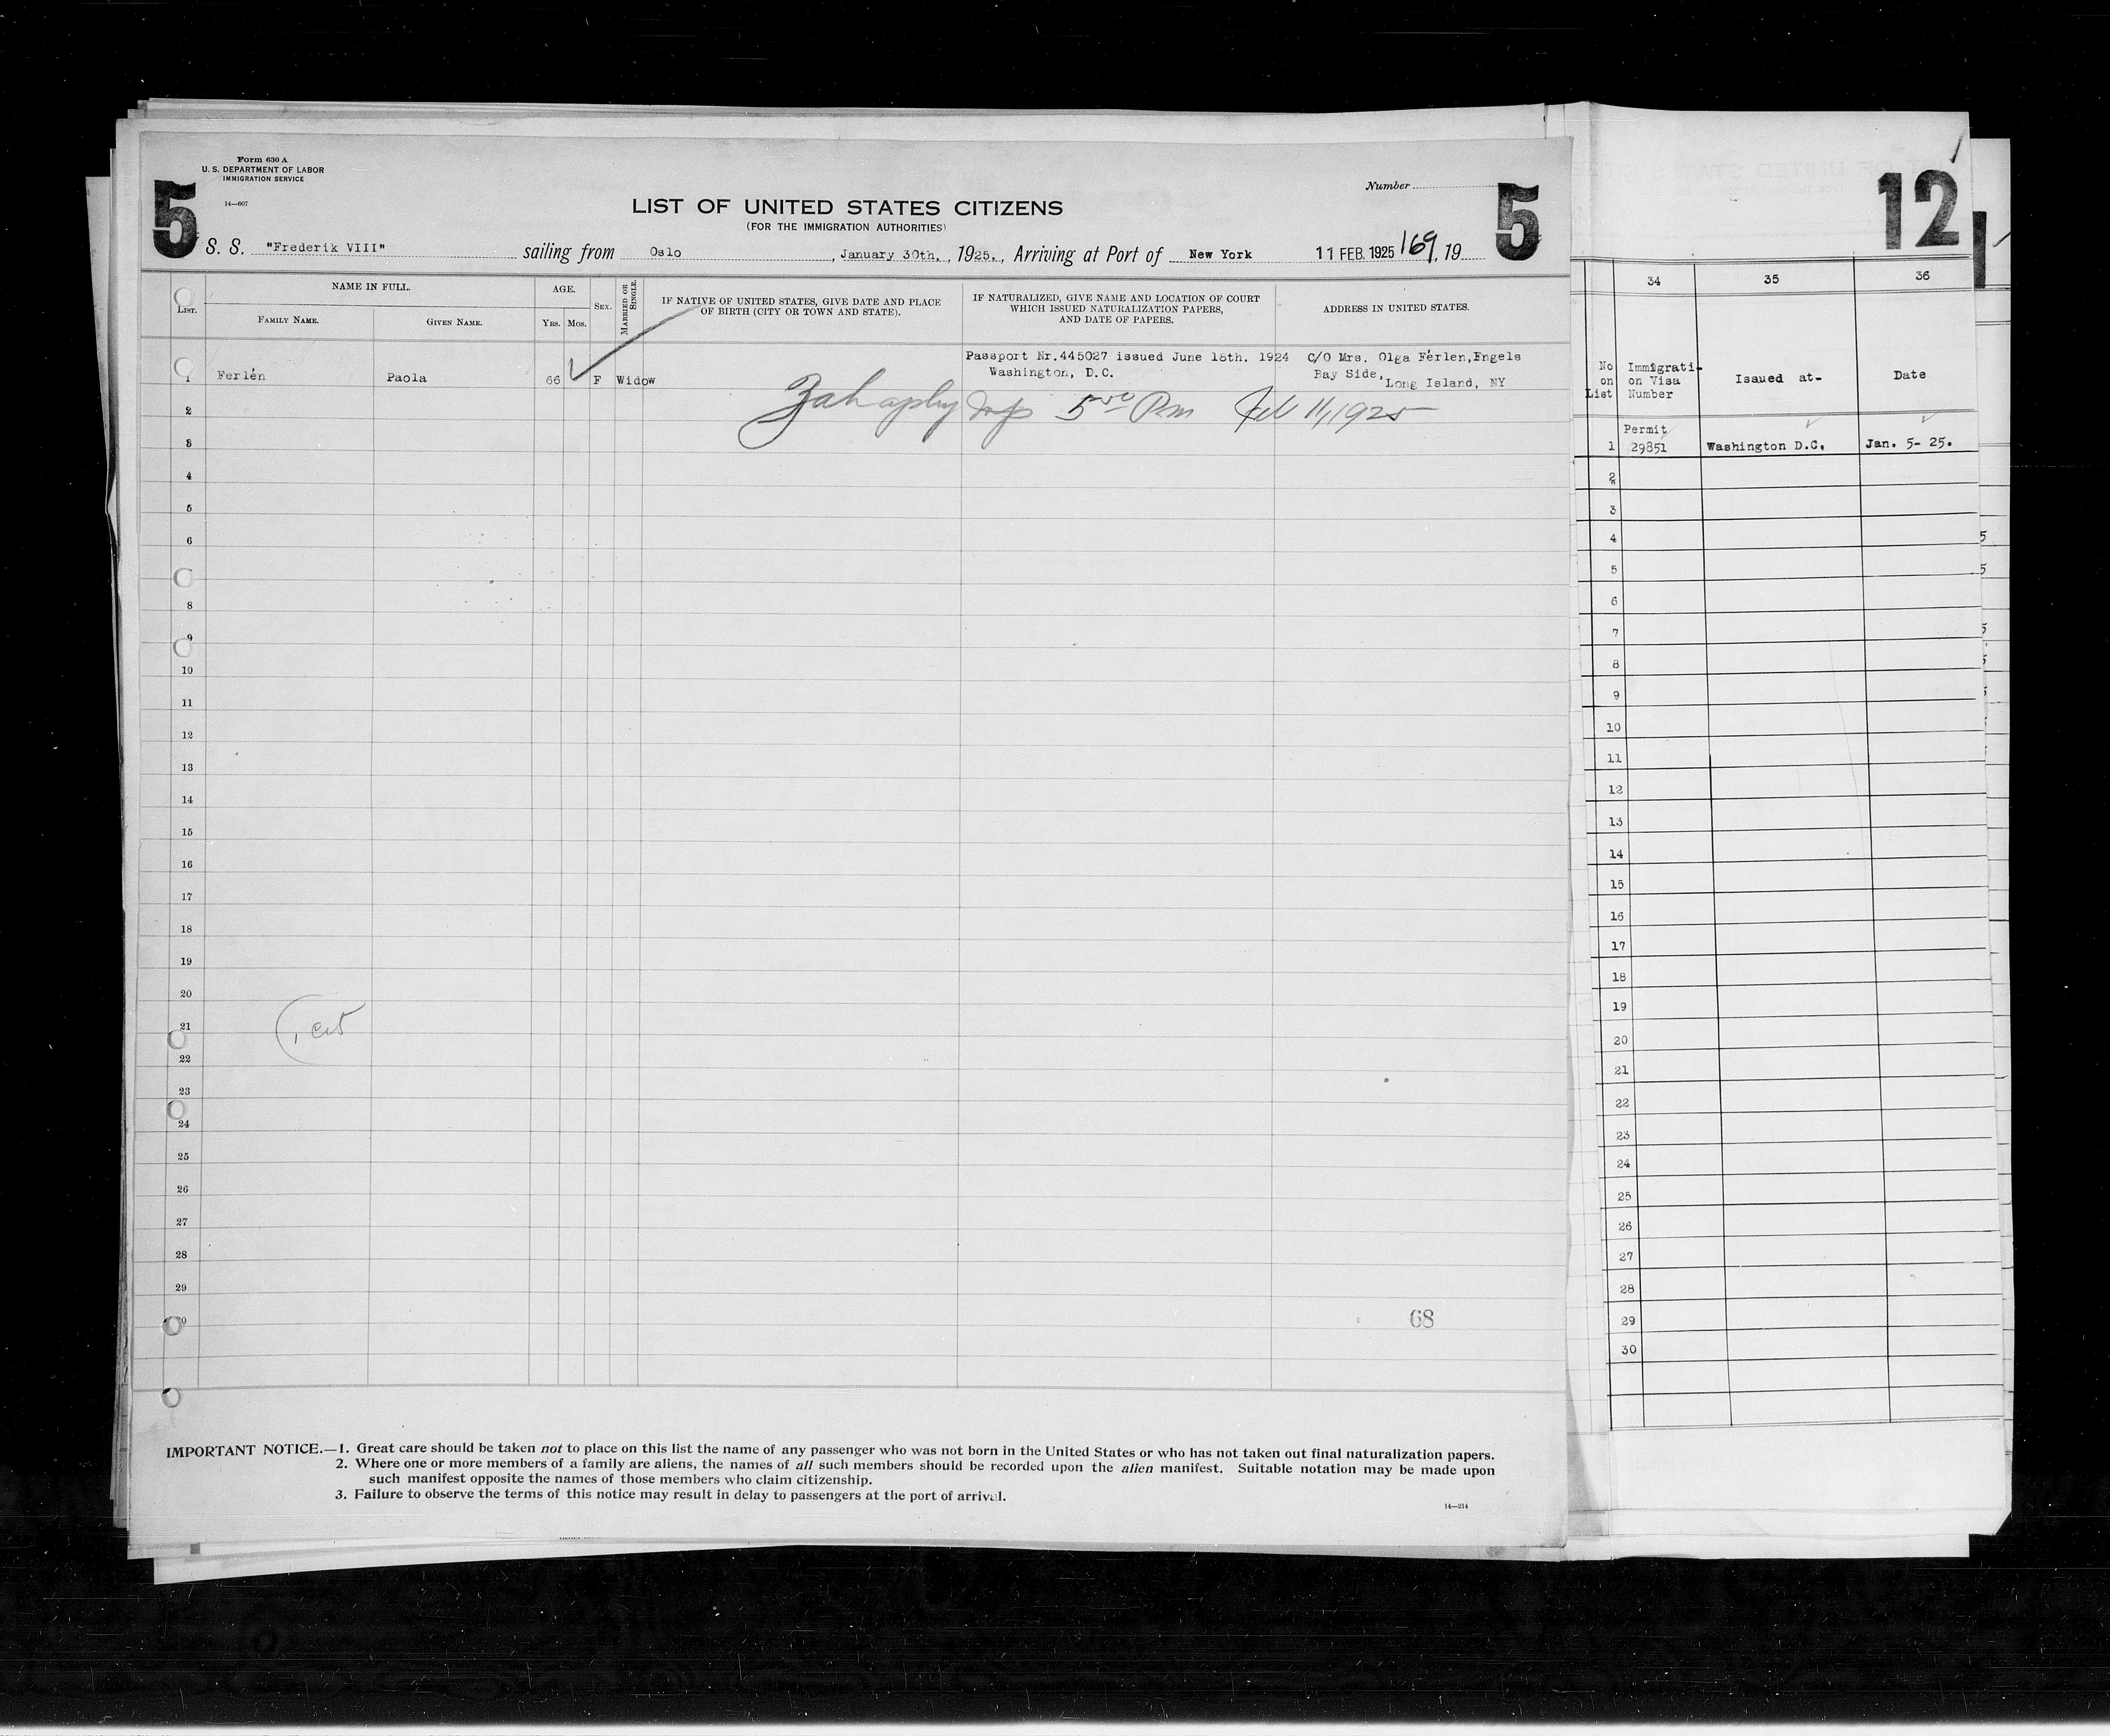 Form 630 A
U. S. DEPARTMENT OF LABOR
IMMIGRATION SERVICE
14—607
5
Number
5
LIST OF UNITED STATES CITIZENS
(FOR THE IMMIGRATION AUTHORITIES)
S. S. "Frederik VIII" sailing from Oslo, January 30th, 1925, Arriving at Port of New York 11 FEB. 1925 169, 19
LIST.
NAME IN FULL.
FAMILY NAME.
GIVEN NAME.
AGE.
YRS.
MOS.
SEX.
MARRIED OR SINGLE.
IF NATIVE OF UNITED STATES, GIVE DATE AND PLACE
OF BIRTH (CITY OR TOWN AND STATE).
IF NATURALIZED, GIVE NAME AND LOCATION OF COURT
WHICH ISSUED NATURALIZATION PAPERS,
AND DATE OF PAPERS.
ADDRESS IN UNITED STATES.
Passport Nr.445027 issued June 18th. 1924
Washington, D.C.
C/O Mrs. Olga Ferlen,Engels
Bay Side,
Long Island, NY
1 Ferlén Paola 66 F Widow
5 00 Pm Feb 11, 1925
2
3
4
5
6
8
9
10
11
12
13
14
15
16
17
18
19
20
21
22
23
24
25
26
27
28
29
68
IMPORTANT NOTICE.—1. Great care should be taken not to place on this list the name of any passenger who was not born in the United States or who has not taken out final naturalization papers.
2. Where one or more members of a family are aliens, the names of all such members should be recorded upon the alien manifest. Suitable notation may be made upon
such manifest opposite the names of those members who claim citizenship.
3. Failure to observe the terms of this notice may result in delay to passengers at the port of arrival.
14—214
12
34
35
36
No
on
List
Immigrati-
on Visa
Number
Issued at-
Date
Permit
1 29851 Washington D.C. Jan. 5- 25.
2
3
4
5
6
7
8
9
10
11
12
13
14
15
16
17
18
19
20
21
22
23
24
25
26
27
28
29
30